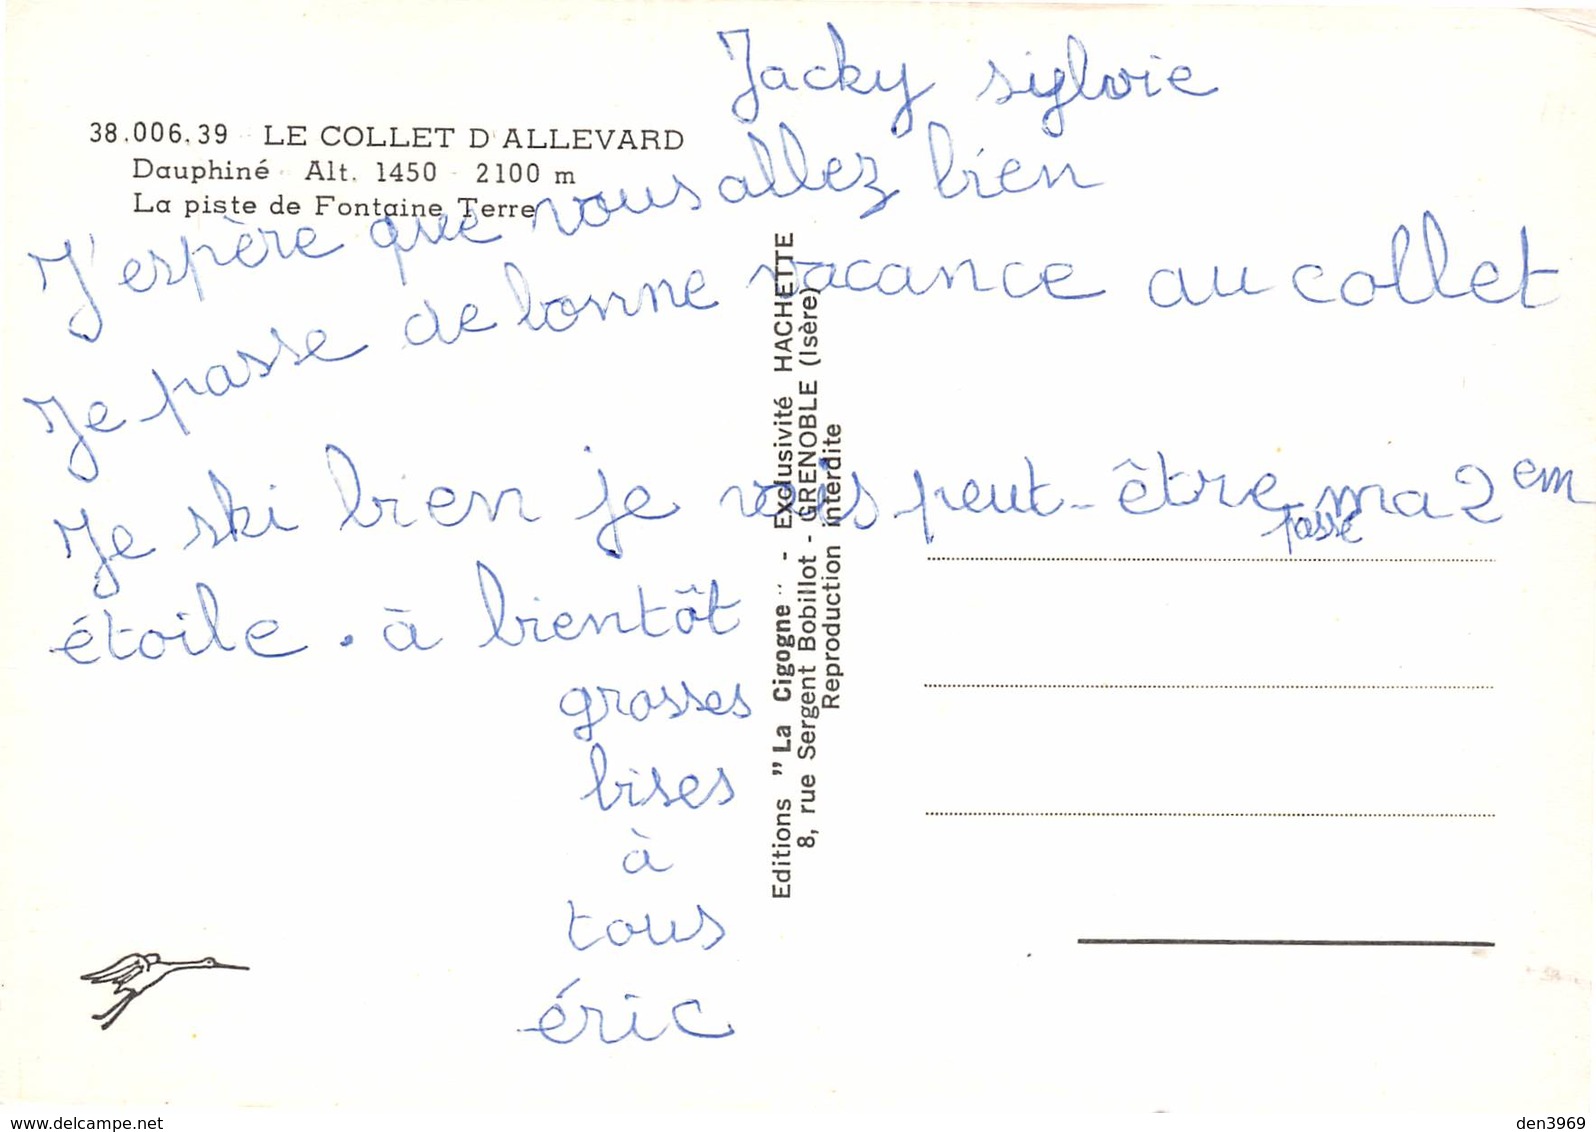 Jacky siylvie
38.006.39 LE COLLET D'ALLEVARD
Dauphiné - Alt. 1450 - 2100 m
La piste de Fontaine Terre
J'espère que vous allez bien
Je passe de bonne vacance au collet
Je ski bien je vais peut-être ma 2em
passé
étoile . à bientôt
grosses
bises
à
tous
éric
Editions "La Cigogne" - Exclusivité HACHETTE
8, rue Sergent Bobillot - GRENOBLE (Isère)
Reproduction interdite
www.delcampe.net
den3969